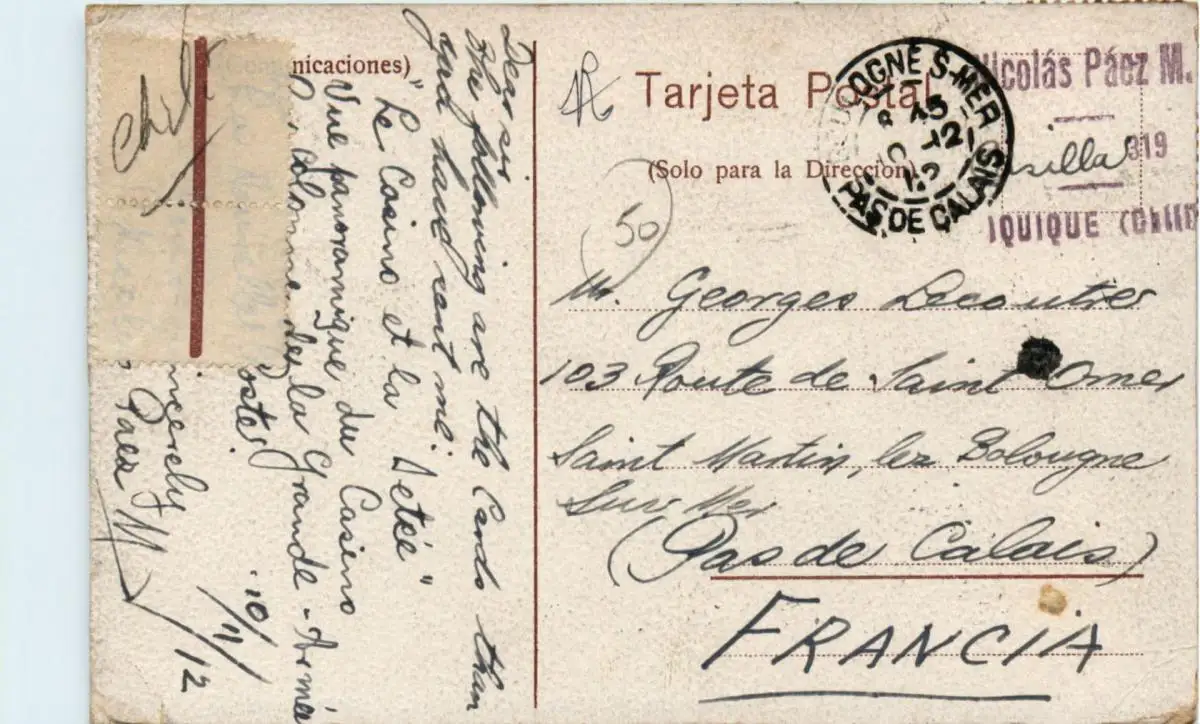 (Comunicaciones)
Chile
Dear sir
the following are the Cards than
yard have cent me:
"Le Casino et la Jetée"
Vue panoramique du Casino
la Colonne de la Grande-Armée
Poste
incerely
Paez M
10/11/12
Tarjeta Postal
(Solo para la Direccion)
50
BOULOGNE S-MER
PAS DE CALAIS
Nicolás Páez M.
Casilla 319
IQUIQUE (CHILE
M. Georges Lecoutre
103 Route de Saint Omer
Saint Martin, lez Bolougne
Sur Mer
(Pas de Calais)
FRANCIA